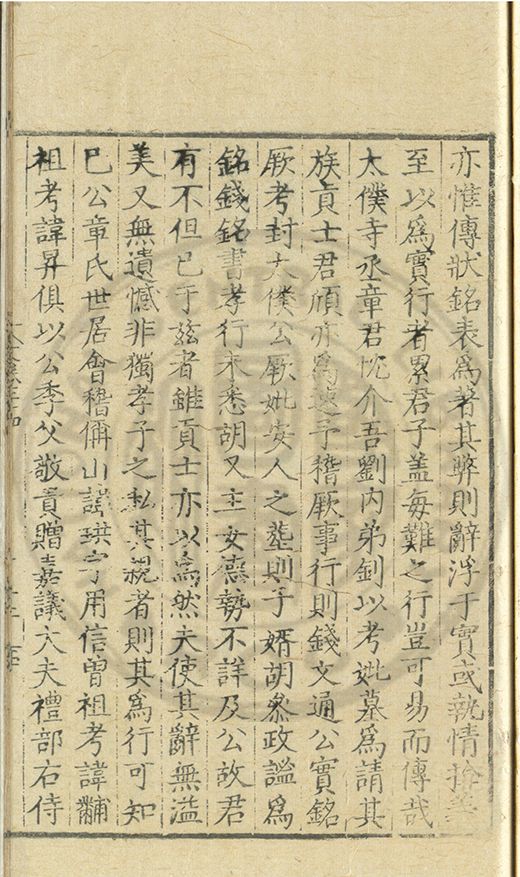 亦惟傳狀銘表爲著其弊則辭浮于實或執情掩義
至以爲實行者累君子盖每難之行豈可易而傳哉
太僕寺丞章君忱介吾劉内弟釗以考妣墓爲請其
族貢士君頎亦爲速予稽厥事行則錢文通公實銘
厥考封太僕公厥妣安人之塟則子婿胡叅政謐爲
銘錢銘書孝行未悉胡又主女德勢不詳及公故君
有不但已于兹者雖貢士亦以爲然夫使其辭無溢
美又無遺憾非獨孝子之私其親者則其爲行可知
已公章氏世居會稽偁山諱珙字用信曾祖考諱黼
祖考諱昇俱以公季父敞貴贈嘉議大夫禮部右侍